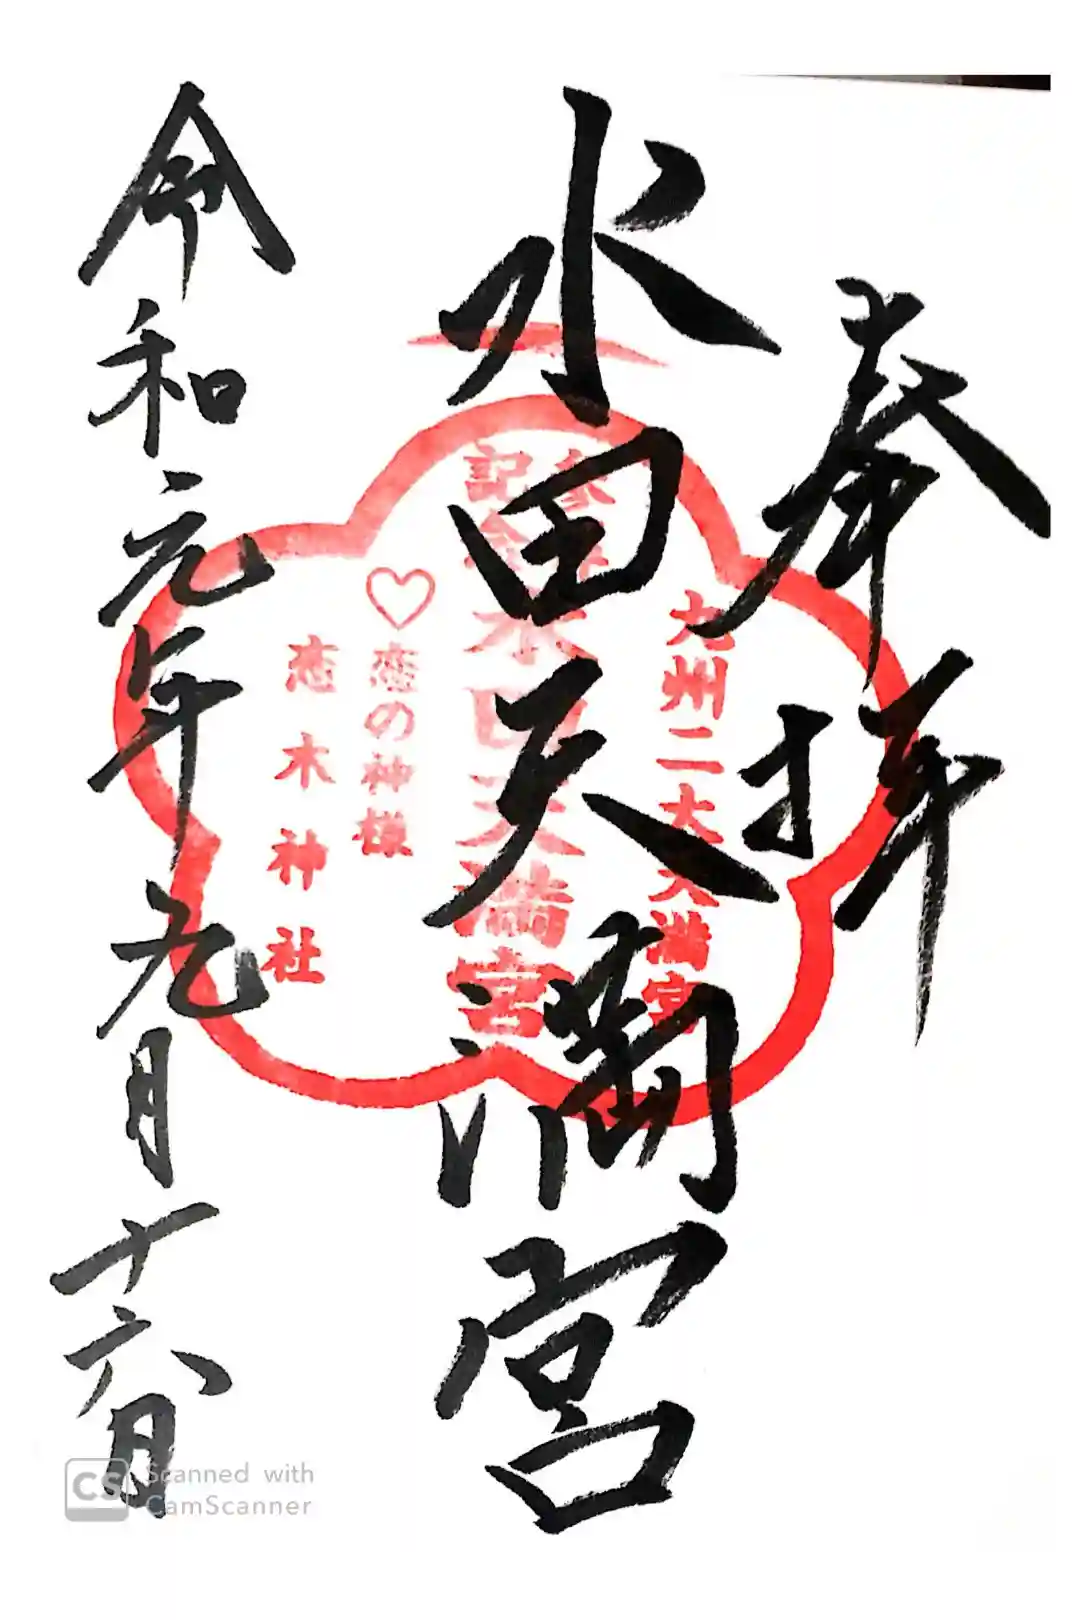 奉拝
水田天満宮
令和元年九月十六日
九州二大天満宮
参拝
記念
水田天満宮
♡恋の神様
恋木神社
CS Scanned with
CamScanner